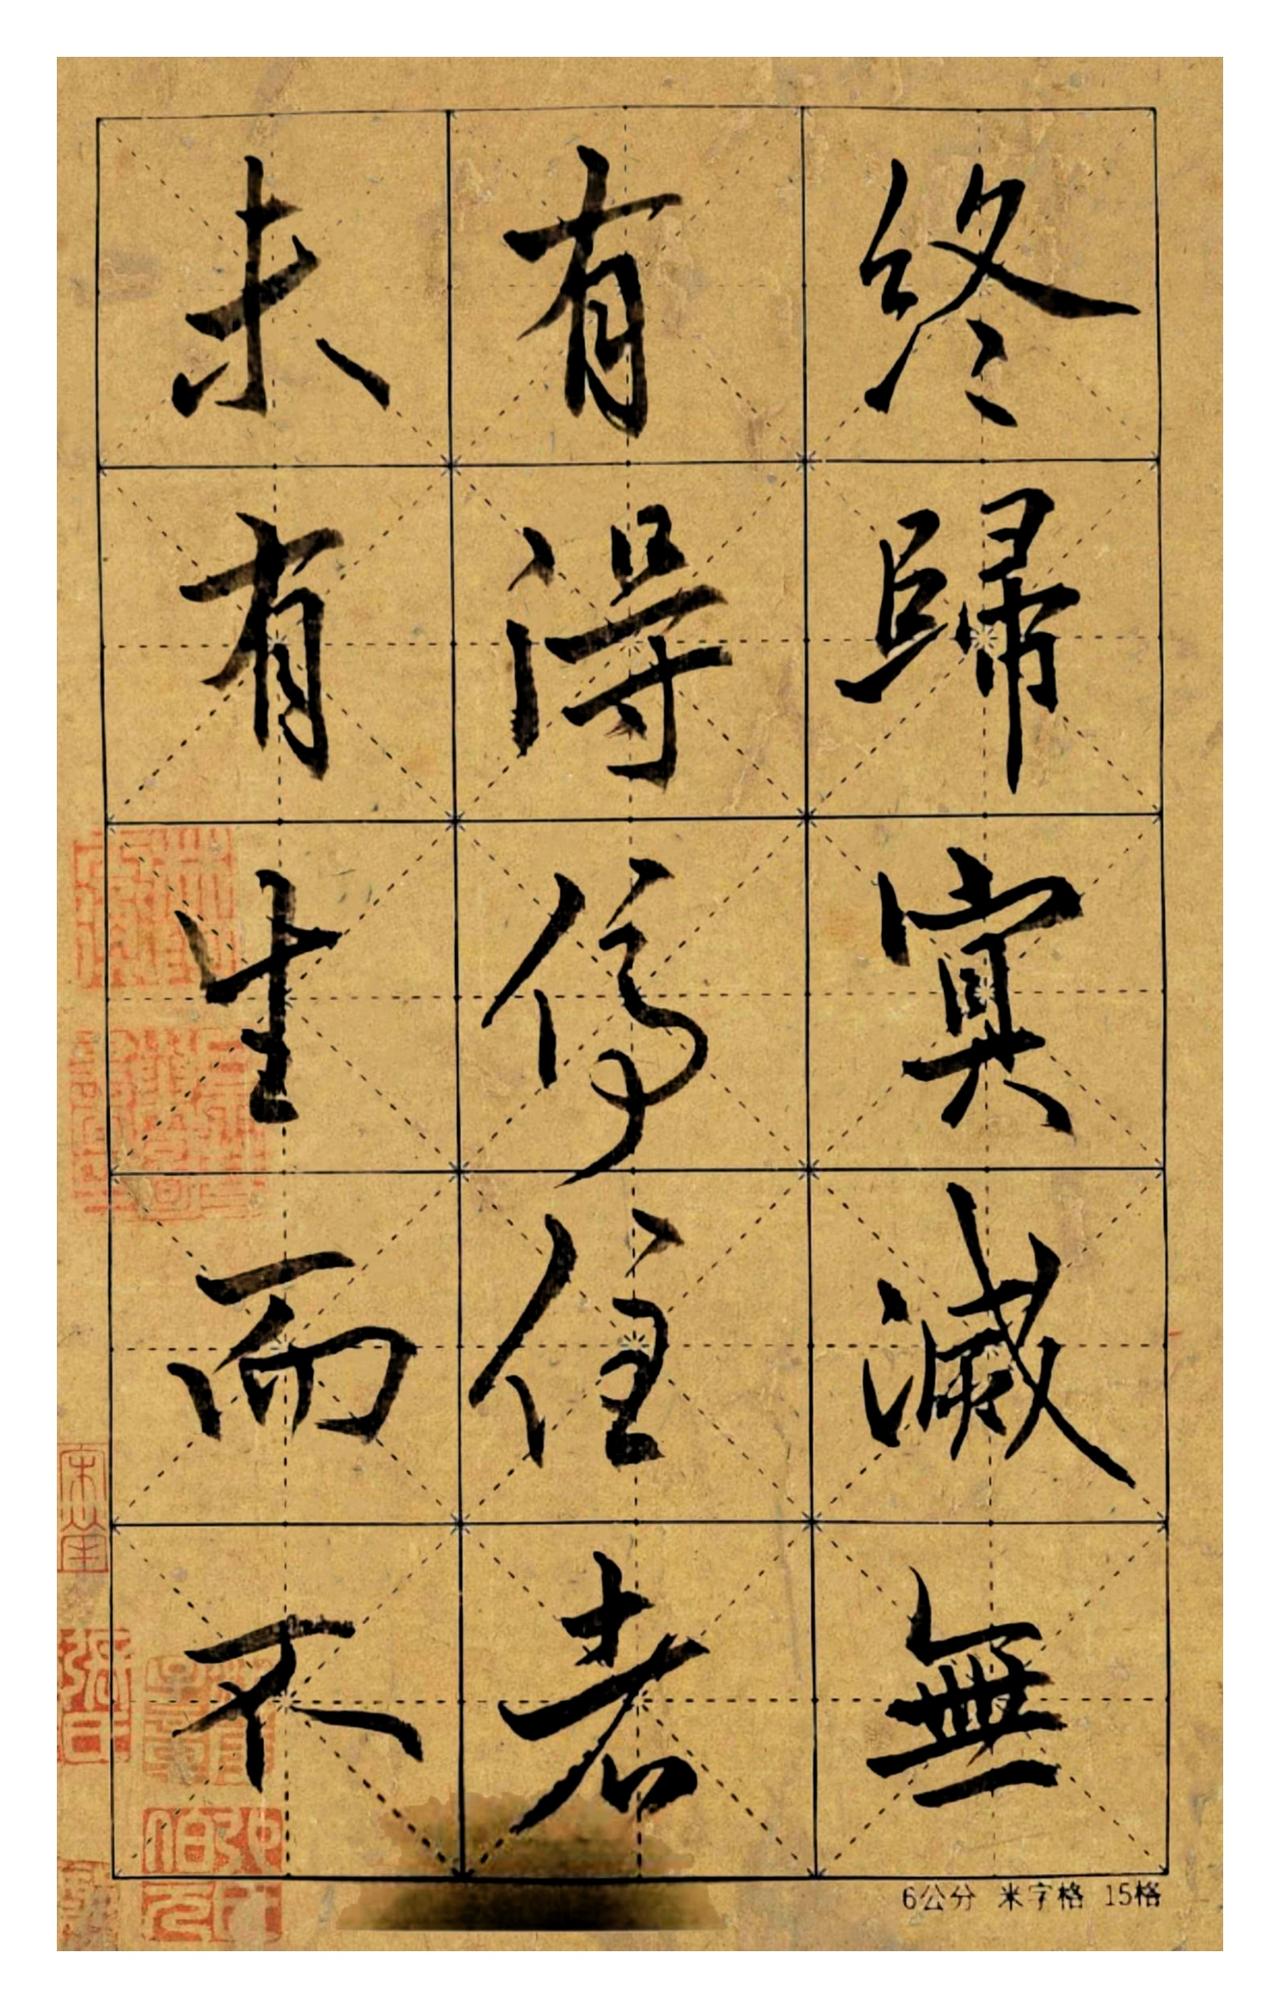 終歸冥滅無
有得停住者
未有生而不
6公分 米字格 15格